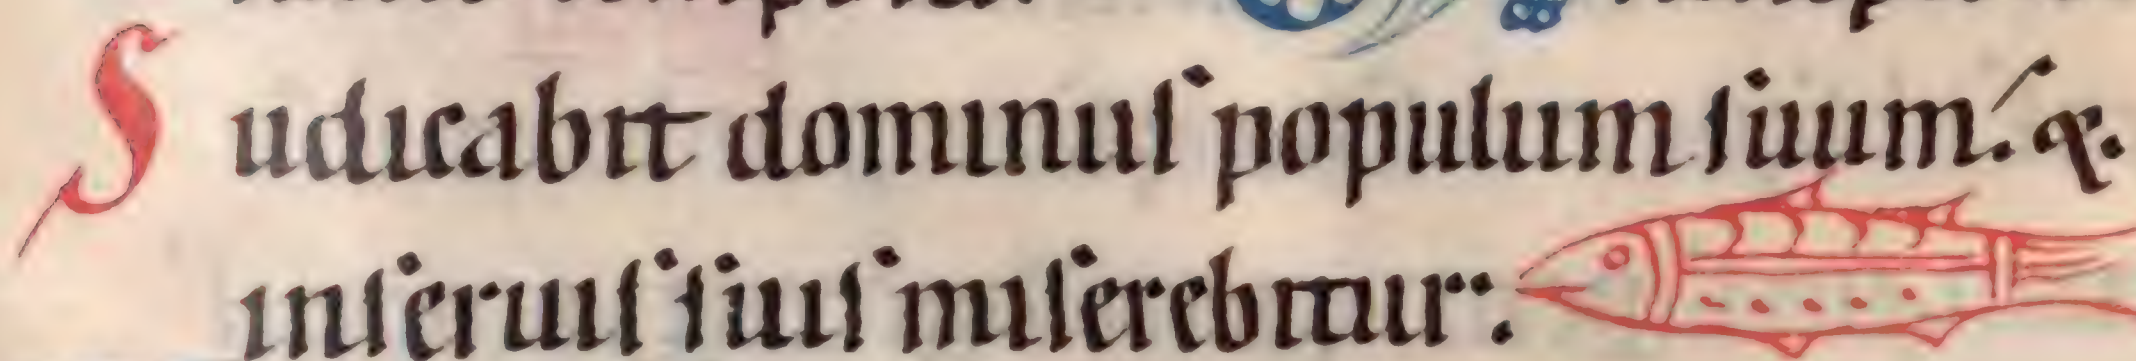 Sudicabit dominuſ populum ſuum. &.
inſeruiſ ſuiſ miſerebitur: